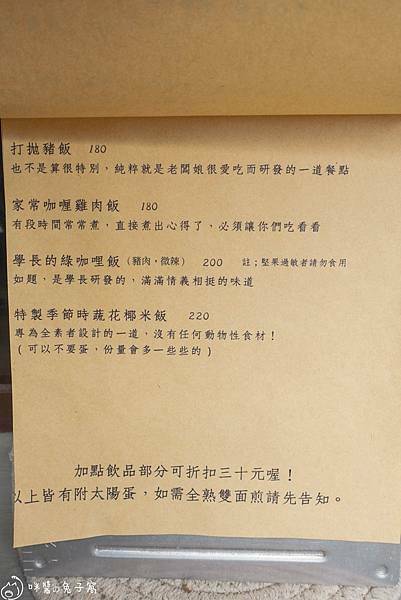 打拋豬飯 180
也不是算很特別，純粹就是老闆娘很愛吃而研發的一道餐點
家常咖喱雞肉飯 180
有段時間常常煮，直接煮出心得了，必須讓你們吃看看
學長的綠咖哩飯（豬肉，微辣） 200 註；堅果過敏者請勿食用
如題，是學長研發的，滿滿情義相挺的味道
特製季節時蔬花椰米飯 220
專為全素者設計的一道，沒有任何動物性食材！
（可以不要蛋，份量會多一些些的）
加點飲品部分可折扣三十元喔！
以上皆有附太陽蛋，如需全熟雙面煎請先告知。
咪醬の兔子窩